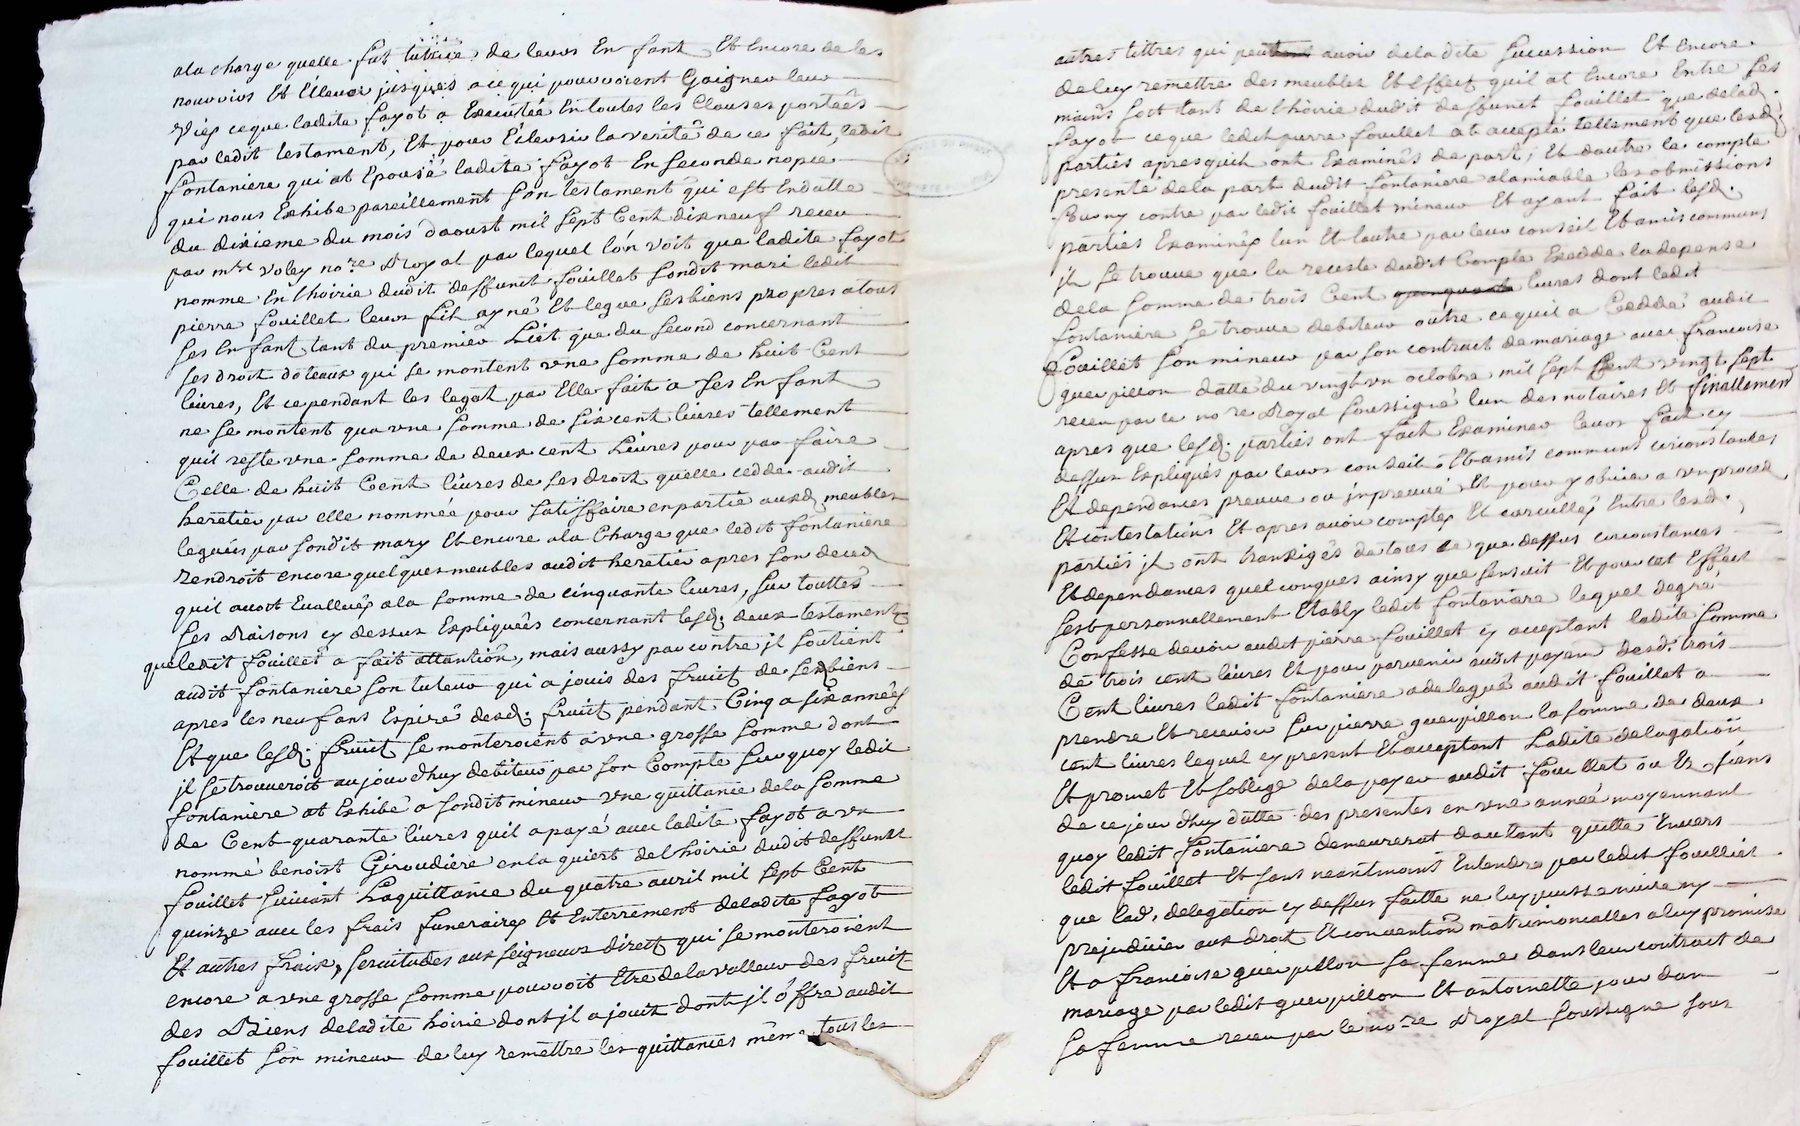 ala charge quelle fut tutrice de leurs Enfant Et Encore de les
nourrirs Et Elever jusques a ce qui pouvoroient Gaigner leur
Viés ce que ladite fayot a Executée En toutes les Clauses portées
par ledit testament, Et pour Eclersir la verité de ce fait, ledit
fontaniere qui at Epousé ladite fayot En seconde nopce,
qui nous Exhibe pareillement son testament qui est En datte
du dixieme du mois daoust mil sept Cent dix neuf receu
par mtre voley nore Royal par lequel lon voit que ladite fayot
nomme En lhoirie dudit deffunct fouillet sondit mari ledit
pierre fouillet leur fils ayné Et legue ses biens propres a tous
ses Enfant tant du premier Liet que du second concernant
ses droit doteaux qui se montent vne somme de huit Cent
liures, Et cependant les legats par Elle fait a ses Enfant
ne se montent qua vne somme de six cent liures tellement
quil reste vne somme de deux cent Liures pour par faire
Celle de huit Cent liures de ses droit quelle cedde audit
heretier par elle nommée pour satisffaire en partie auxd meubles
legués par sondit mary Et encore ala Charge que ledit fontaniere
rendroit encore quelques meubles audit heretier apres son deced
quil auoit Evallués ala somme de cinquante liures, sur touttes
les Raisons cy dessus Expliqueés concernant lesd. deux testaments
que ledit fouillet a fait attantion, mais aussy par contre jl soutient
audit fontaniere son tuteur qui a jouis des fruict de ses biens
apres les neuf ans Expiré desd. fruict pendant Cinq a six années
Et que lesd. fruict se monteroient a vne grosse somme dont
jl se trouueroit aujourdhuy debiteur par son Compte sur quoy ledit
fontaniere at Exhibé a sondit mineur vne quittance dela somme
de Cent quarante liures quil a payé auec ladite fayot a vn
nommé benoist Giroudiere en la quiert de lhoirie dudit deffunct
fouillet suiuant Laquittance du quatre auril mil sept Cent
quinze auec les frais funeraires Et Enterrement deladite fayot
Et autres fraix, seruitudes aux seigneurs direct qui se monteroient
encore a vne grosse somme pouuoit Etre de la valleur des fruict
des Biens deladite hoirie dont jl a jouit dont jl offre audit
fouillet son mineur de luy remettre les quittances mème tous les
autres tittres qui peut avoir deladite succession Et Encore
de luy remettre des meubles Et Effect quil at Encore Entre ses
mains soit tant de lhoirie dudit deffunct fouillet que delad.
fayot ce que ledit pierre fouillet at accepté tellement que lesd.
parties apres quils ont Examinés de part, Et dautre le compte
presenté dela part dudit fontaniere alamiable les obmissions
fourny contre par ledit fouillet mineur Et ayant fait lesd.
parties Examinés lun Et lautre par leur conseil Et amis communs
jl se trouue que la receste dudit Compte Exedde la depense
dela somme de trois Cent liures dont ledit
fontaniere se trouue debiteur outre ce quil a Ceddé audit
fouillet son mineur par son contract de mariage auec francoise
guerpillon datté du vingt vn octobre mil sept Cent vingt sept
receu par le nore Royal soussigné lun des notaires Et finallement
apres que lesd. parties ont fait Examiner leur fait cy
dessus Expliqués par leurs conseil Et amis communs circonstances
Et dependances preuue ou jnpreuué Et pour y obuier a vn proces
Et contestations Et apres auoir comptés Et carcullés Entre lesd.
parties jl ont transigés de tous ce que dessus circonstances
Et dependances quelconques ainsy que sensuit Et pour cet Effect
sest personnellement Etably ledit fontaniere lequel degré
Confesse deuoir audit pierre fouillet cy acceptant ladite somme
de trois cent liures Et pour paruenir audit payem desd. trois
Cent liures ledit fontaniere a delagué audit fouillet a
prendre Et receuoir sur pierre guerpillon la somme de deux
cent liures lequel cy present Et acceptant Ladite delagation
Et promet Et soblige dela payer audit fouillet ou Es siens
de ce jourdhuy datte des presentes en vne année moyennant
quoy ledit fontaniere demeurerat dautant quitte Enuers
ledit fouillet Et sans neantmoins Entendre par ledit fouilliet
que lad. delegation cy dessus faitte ne luy puisse nuire ny
prejudicier aux droit Et conuention matrimonialles a luy promise
Et a francoise guerpillon sa femme dans leur contract de
mariage par ledit guerpillon Et antoinette jourdan
sa femme receu par le nore Royal soussigné sous